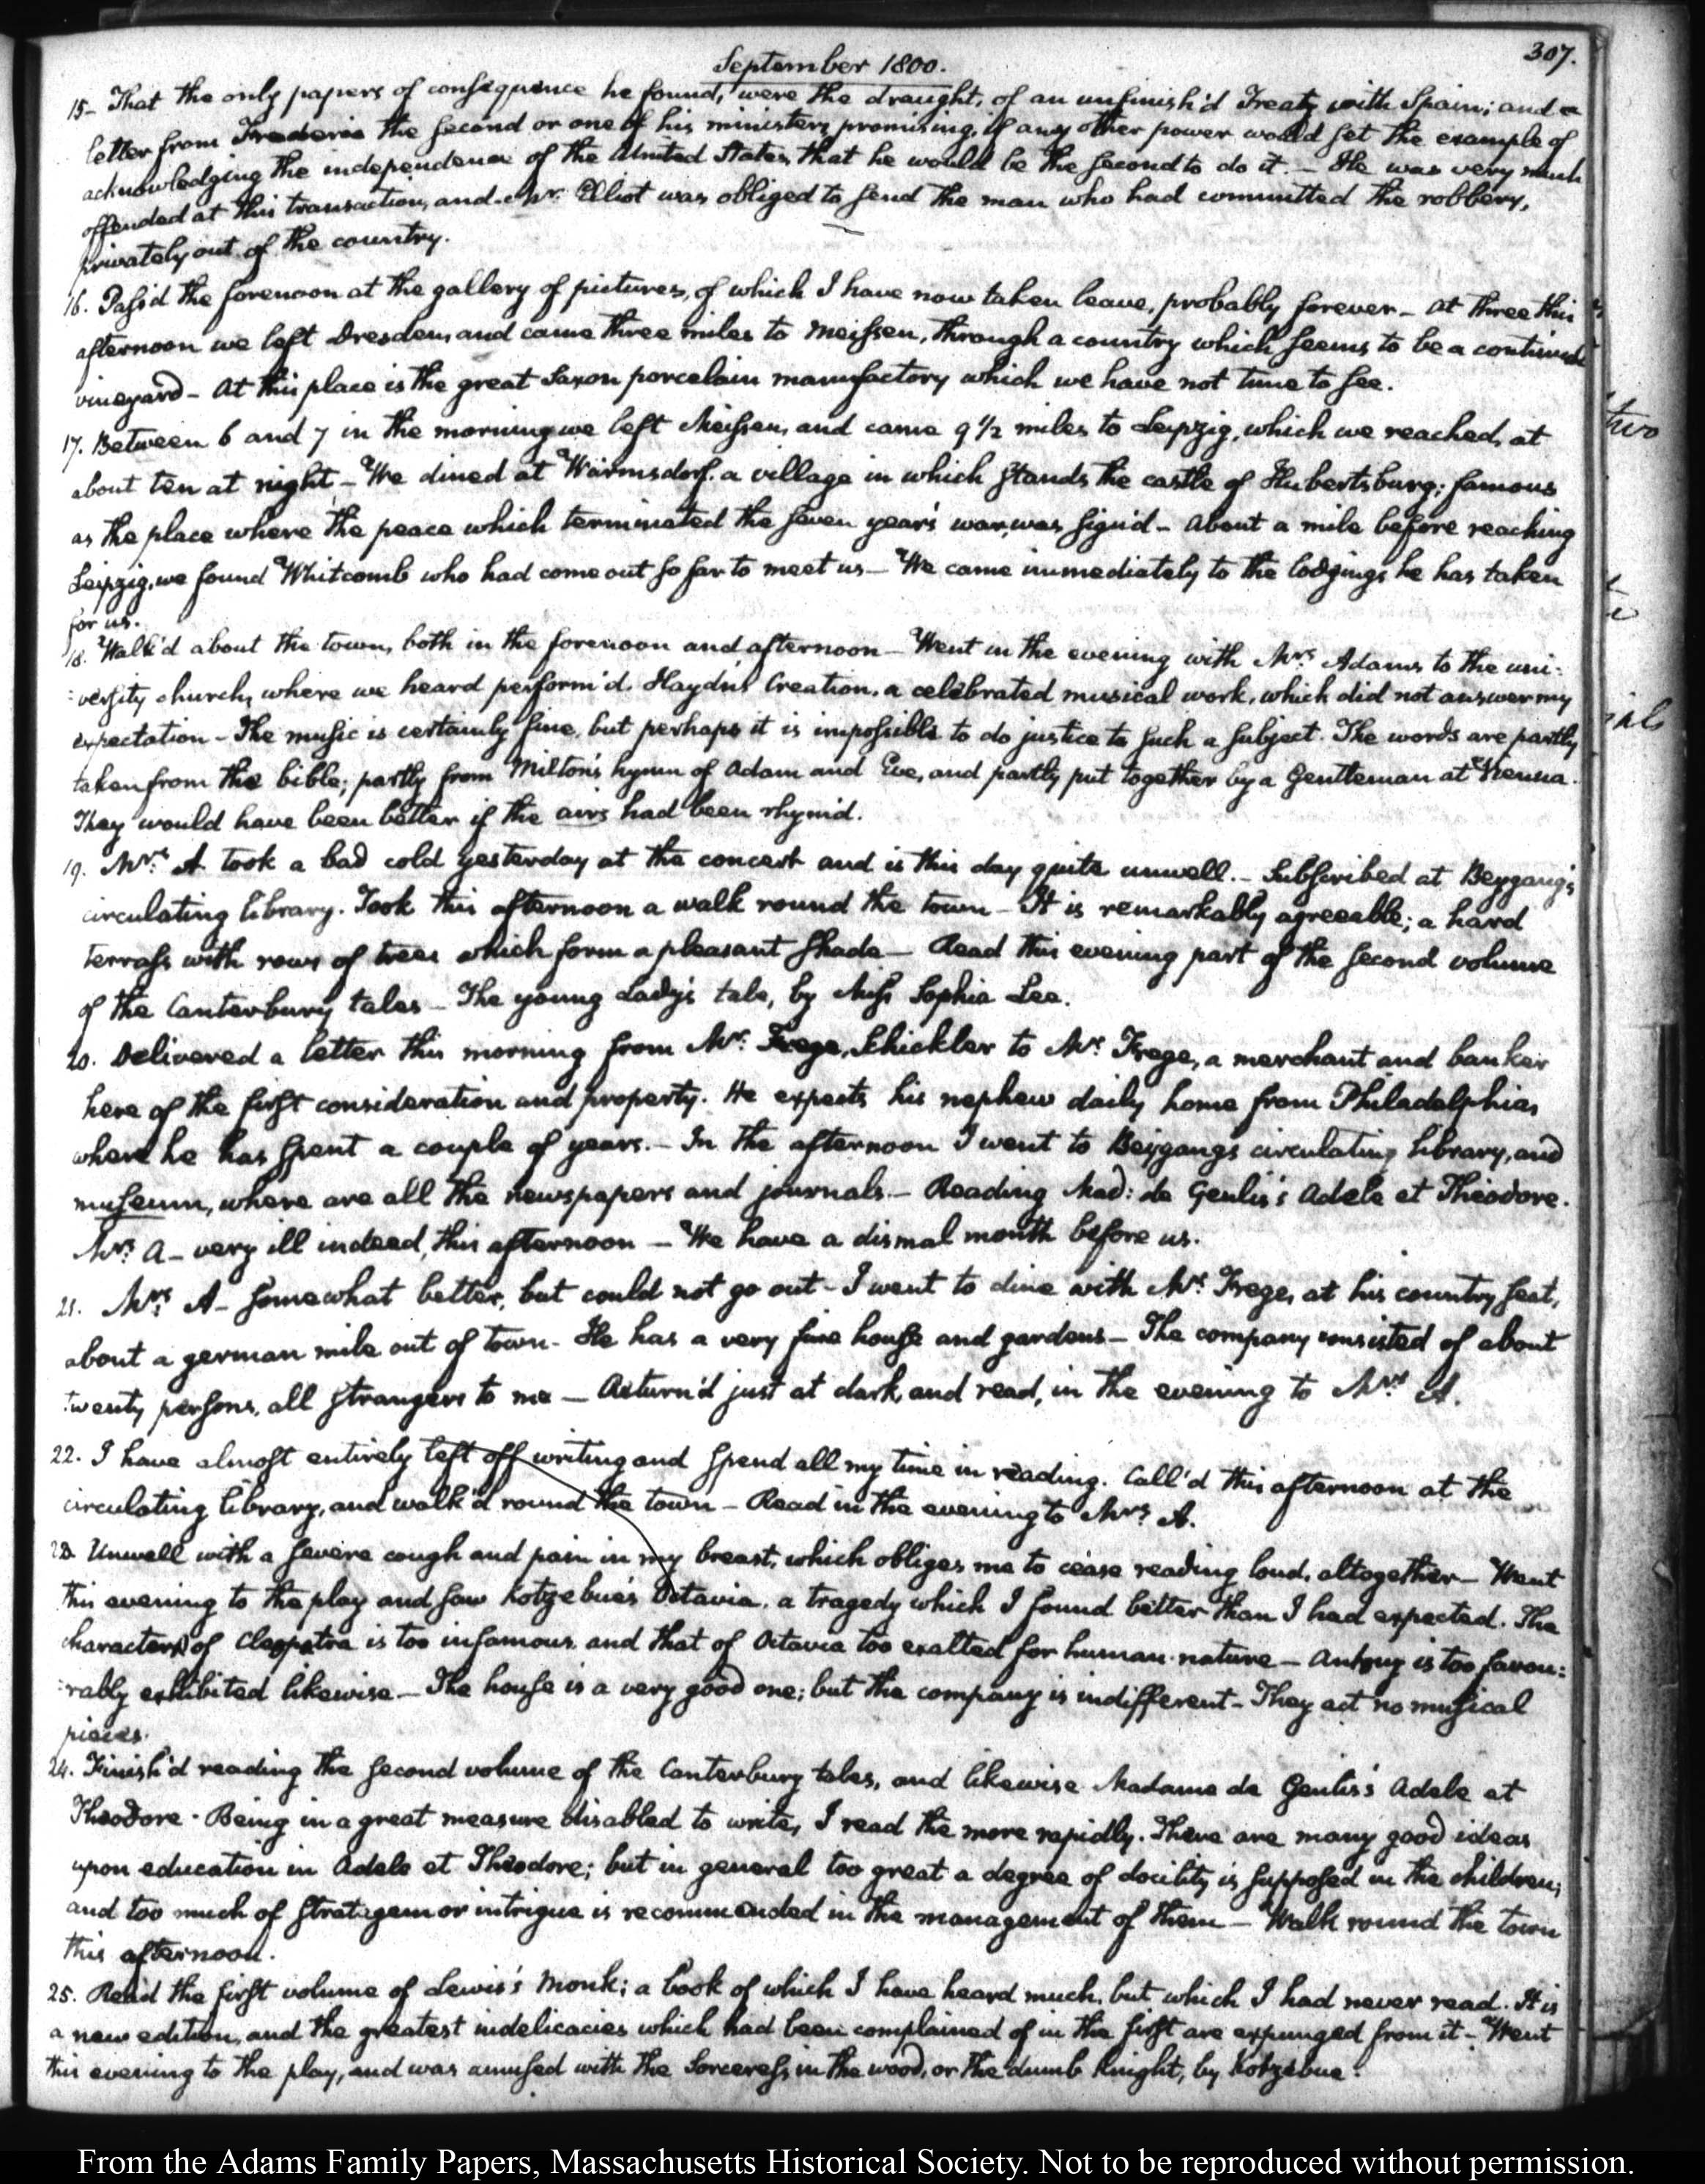 307.
September 1800.
15- That the only papers of consequence he found, were the draught, of an unfinish'd Treaty with Spain; and a
letter from Frederic the second or one of his ministers promising, if any other power would set the example of
acknowledging the independence of the United States, that he would be the second to do it. — He was very much
offended at this transaction, and Mr: Elliot was obliged to send the man who had committed the robbery,
privately out of the country.
16. Pass'd the forenoon at the gallery of pictures, of which I have now taken leave, probably forever — At three this
afternoon we left Dresden, and came three miles to Meissen, through a country which seems to be a continued
vineyard — At this place is the great Saxon porcelain manufactory which we have not time to see.
17. Between 6 and 7 in the morning we left Meissen, and came 9 1/2 miles to Leipzig, which we reached, at
about ten at night — We dined at Wärmsdorf. a village in which stands the castle of Hubertsburg; famous
as the place where the peace which terminated the seven year's war, was sign'd — About a mile before reaching
Leipzig, we found Whitcomb who had come out so far to meet us — We came immediately to the lodgings he has taken
for us.
18. Walk'd about the town, both in the forenoon and afternoon — Went in the evening with Mrs: Adams to the uni-
:versity church, where we heard perform'd. Haydn's Creation, a celebrated musical work, which did not answer my
expectation — The music is certainly fine, but perhaps it is impossible to do justice to such a subject. The words are partly
taken from the bible; partly from Milton's hymn of Adam and Eve, and partly put together by a Gentleman at Vienna.
They would have been better if the airs had been rhym'd.
19. Mrs: A. took a bad cold yesterday at the concert and is this day quite unwell. — Subscribed at Beygang's
circulating library. Took this afternoon a walk round the town — It is remarkably agreeable; a hard
terrass with rows of trees which form a pleasant shade — Read this evening part of the second volume
of the Canterbury tales — The young Lady's tale, by Miss Sophia Lee.
20. Delivered a letter this morning from Mr: Frege, Schickler to Mr: Frege, a merchant and banker
here of the first consideration and property. He expects his nephew daily home from Philadelphia,
where he has spent a couple of years. — In the afternoon I went to Beygang's circulating library, and
museum, where are all the newspapers and journals. — Reading Mad: de Genlis's Adele et Théodore.
Mrs: A — very ill indeed, this afternoon — We have a dismal month before us.
21. Mrs: A — somewhat better, but could not go out — I went to dine with Mr: Frege, at his country seat,
about a german mile out of town — He has a very fine house and gardens — The company consisted of about
twenty persons, all strangers to me — Return'd just at dark, and read, in the evening to Mrs: A.
22. I have almost entirely left off writing and spend all my time in reading. Call'd this afternoon at the
circulating library, and walk'd round the town — Read in the evening to Mrs: A.
23. Unwell with a severe cough and pain in my breast, which obliges me to cease reading loud, altogether — Went
this evening to the play and saw Kotzebue's Octavia, a tragedy which I found better than I had expected. The
character of Cleopatra is too infamous and that of Octavia too exalted for human nature — Antony is too favou:
:rably exhibited likewise — The house is a very good one; but the company is indifferent — They act no musical
pieces.
24. Finish'd reading the second volume of the Canterbury tales, and likewise Madame de Genlis's Adele et
Theodore - Being in a great measure disabled to write, I read the more rapidly. There are many good ideas
upon education in Adele et Theodore; but in general too great a degree of docility is supposed in the children;
and too much of stratagem or intrigue is recommended in the management of them — Walk round the town
this afternoon.
25. Read the first volume of Lewis's Monk; a book of which I have heard much, but which I had never read. It is
a new edition, and the greatest indelicacies which had been complained of in the first are expunged from it — Went
this evening to the play, and was amused with the Sorceress in the wood, or the dumb Knight, by Kotzebue.
two
From the Adams Family Papers, Massachusetts Historical Society. Not to be reproduced without permission.